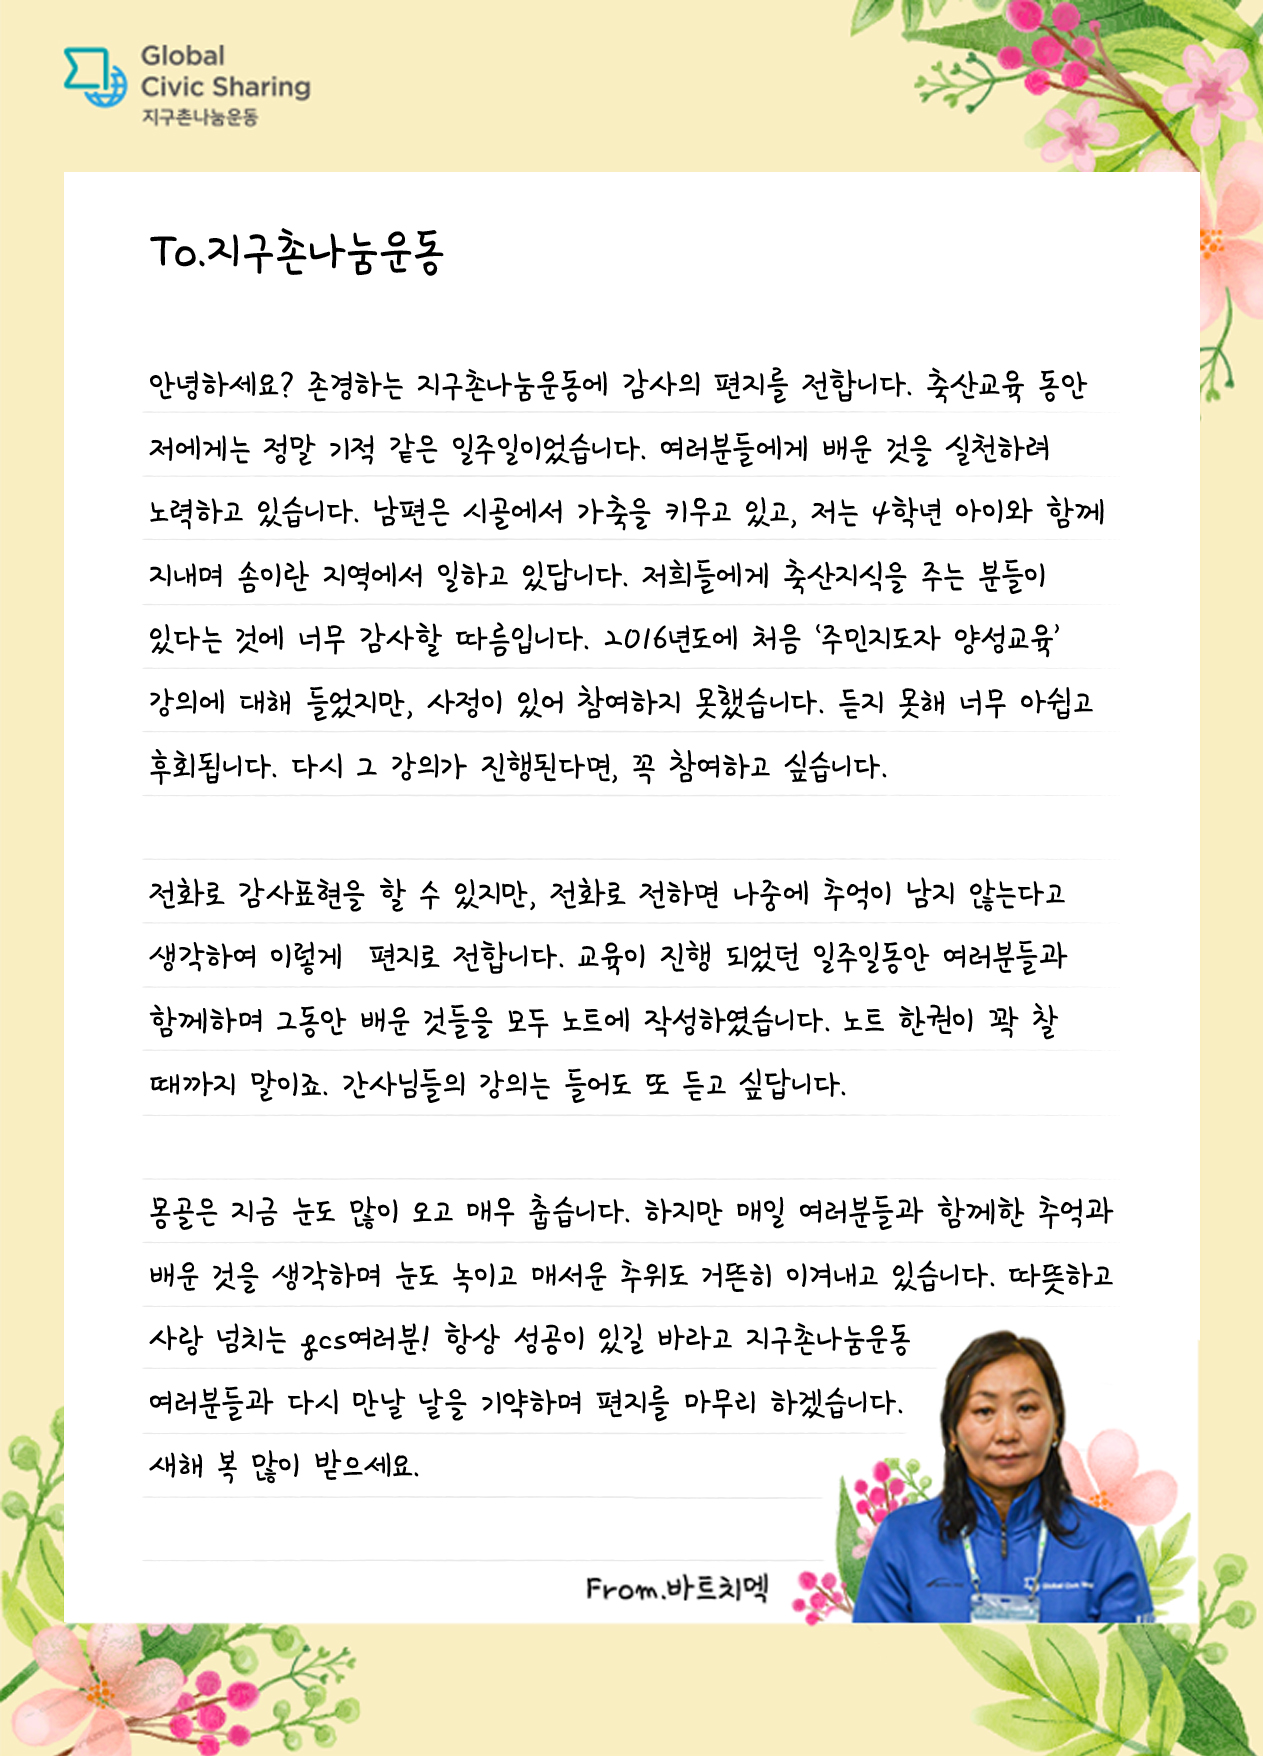 Global
Civic Sharing
지구촌나눔운동
To.지구촌나눔운동
안녕하세요? 존경하는 지구촌나눔운동에 감사의 편지를 전합니다. 축산교육 동안
저에게는 정말 기적 같은 일주일이었습니다. 여러분들에게 배운 것을 실천하려
노력하고 있습니다. 남편은 시골에서 가축을 키우고 있고, 저는 4학년 아이와 함께
지내며 솜이란 지역에서 일하고 있답니다. 저희들에게 축산지식을 주는 분들이
있다는 것에 너무 감사할 따름입니다. 2016년도에 처음 ‘주민지도자 양성교육’
강의에 대해 들었지만, 사정이 있어 참여하지 못했습니다. 듣지 못해 너무 아쉽고
후회됩니다. 다시 그 강의가 진행된다면, 꼭 참여하고 싶습니다.
전화로 감사표현을 할 수 있지만, 전화로 전하면 나중에 추억이 남지 않는다고
생각하여 이렇게 편지로 전합니다. 교육이 진행 되었던 일주일동안 여러분들과
함께하며 그동안 배운 것들을 모두 노트에 작성하였습니다. 노트 한권이 꽉 찰
때까지 말이죠. 간사님들의 강의는 들어도 또 듣고 싶답니다.
몽골은 지금 눈도 많이 오고 매우 춥습니다. 하지만 매일 여러분들과 함께한 추억과
배운 것을 생각하며 눈도 녹이고 매서운 추위도 거뜬히 이겨내고 있습니다. 따뜻하고
사랑 넘치는 gcs여러분! 항상 성공이 있길 바라고 지구촌나눔운동
여러분들과 다시 만날 날을 기약하며 편지를 마무리 하겠습니다.
새해 복 많이 받으세요.
From.바트치멕
Global Civic